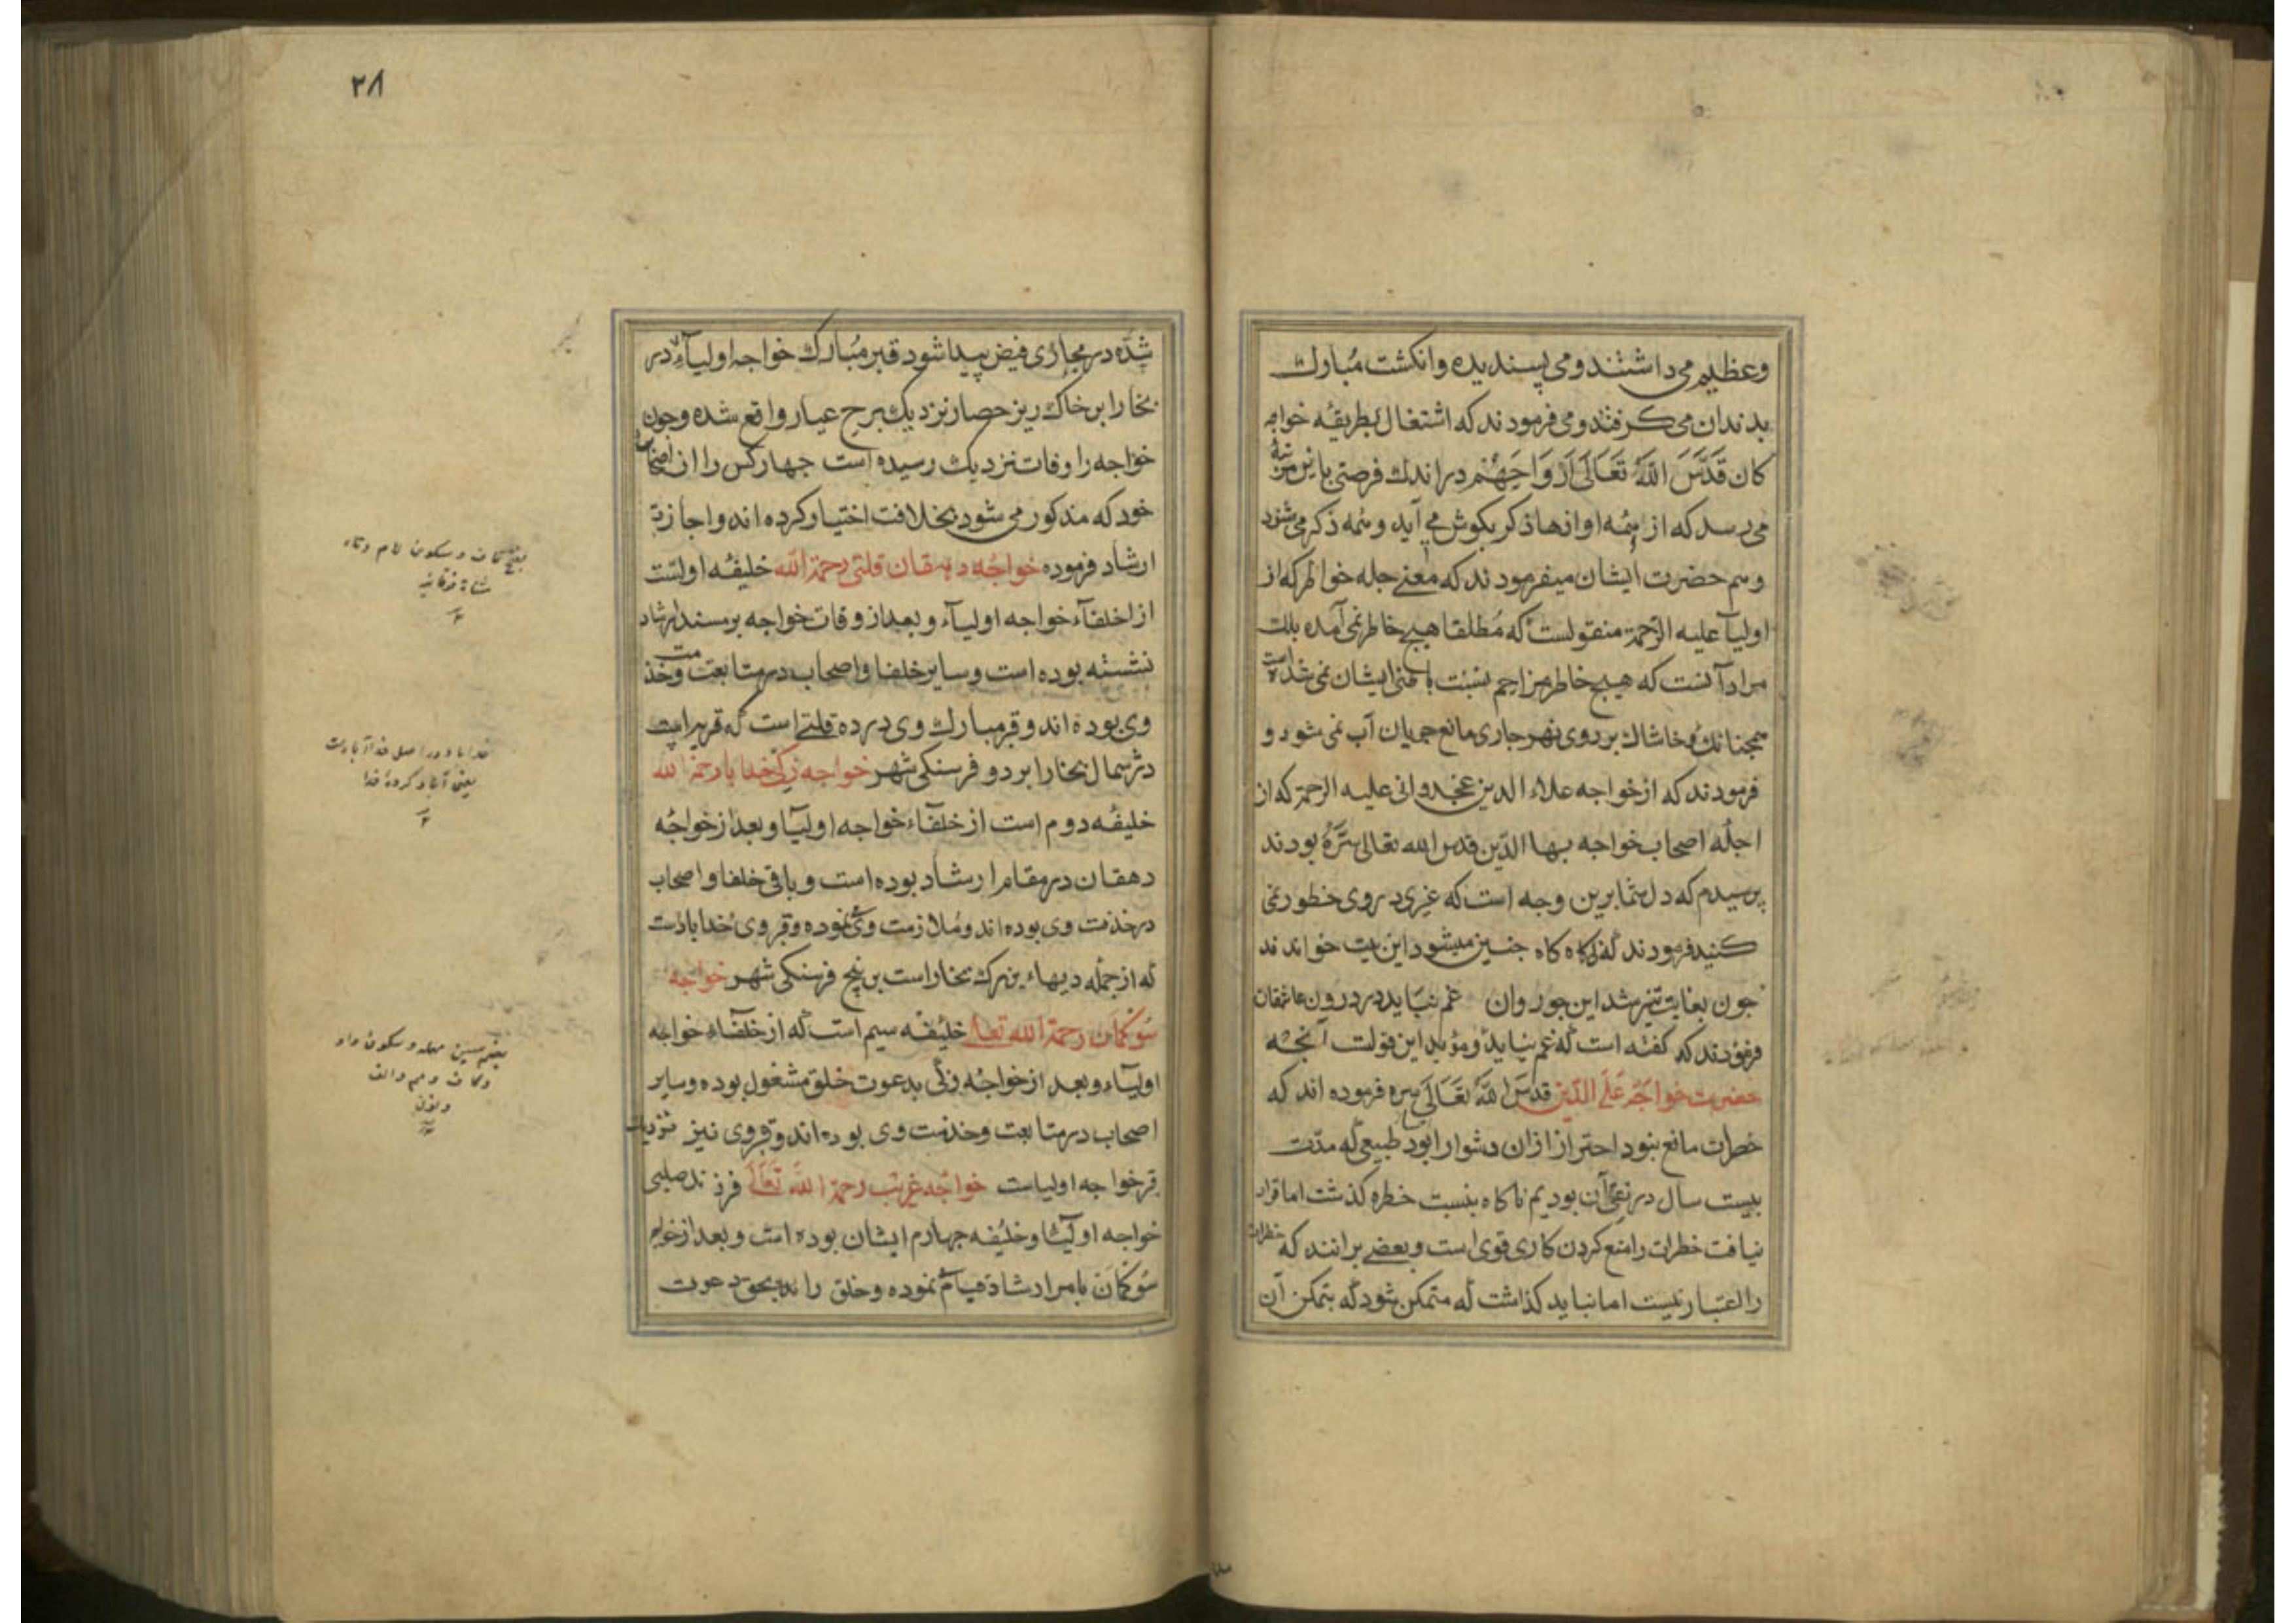 وعظیم می داشتند و می پسندیده وانکشت مُبارك
بدندان می کرفتند و می فرمودند که اشتغال بطریقهٔ خواجه
کان قَدَّسَ اللهُ تَعَالَی اَرْوَاحَهُمْ در اندك فرصتی باین مرتبهٔ
می رسد که از همُه اوازها ذکر بکوش می آید و همُه ذکر می شود
وهم حضرت ایشان میفرمودند که معنے جمله خواطر که از
اولیآ علیه الرّحمة منقولست که مُطلقا هیچ خاطر نمی آمده بلك
مراد آنست که هیچ خاطر مزاحم نسبت باطنی ایشان نمی شداست
همچنانك خاشاك بر روی نهر جاری مانع جریان آب نمی شود و
فرمودند که از خواجه علاء الدین عجدوانی علیه الرحمة که از
اجلّه اصحاب خواجه بهاالدّین قدس الله تعالی سِرَّهُ بودند
پرسیدم که دل شما برین وجه است که غیری در وی خطور نمی
کنید فرمودند که کاه کاه جنین میشود این بیت خواندند
جون بغایت تیز شد این جو روان غم نپاید در درون عاشقان
فرمودند که کفته است که غم نپاید و مؤید این قولست آنجه
حضرت خواجه عَلَا الدّین قدسَ اللهُ تَعَالَی سره فرموده اند که
خطرات مانع نبود احتراز ازان دشوار ابود طبیعی که مدّت
بیست سال در نفی آن بودیم ناکاه بنسبت خطره کذشت اما قرار
نیافت خطرات را منع کردن کاری قوی است و بعضے برانند که خطرات
را اعتبار نیست اما نباید کذاشت که متمکن شود که بتمکن آن
٢٨
شدّه در مجاری فیض پیدا شود قبر مُبارك خواجه اولیآء در
بخارا بر خاك ریز حصار نزدیك برج عیار واقع شده و جون
خواجه را وفات نزدیك رسیده است جهار کس را از اصحاب
خود که مذکور می شود بخلافت اختیار کرده اند و اجازت
ارشاد فرموده خواجُه دهقان قلتی رحمة الله خلیفُه اولست
از اخلفآء خواجه اولیآء و بعد از وفات خواجه بر مسند ارشاد
نشسته بوده است و سایر خلفا و اصحاب در متابعت وخذمت
وی بوده اند و قبر مبارك وی در ده قلتے است که قریه ایست
در شمال بخارا بر دو فرسنکی شهر خواجه زکی خدابا رحمة الله
خلیفُه دوم است از خلفآء خواجه اولیآ و بعد از خواجُه
دهقان در مقام ارشاد بوده است و باقی خلفا و اصحاب
در خذمت وی بوده اند و مُلازمت وی نموده و قبر وی خدابادست
که از جمله دیهاء بزرك بخارا است بر پنج فرسنکی شهر خواجه
سُوکمَان رحمة الله تعالی خلیُفه سیم است که از خلفآء خواجه
اولیآء و بعد از خواجُه زکی بدعوت خلق مشغول بوده و سایر
اصحاب در متابعت و خذمت وی بوده اند و قبر وی نیز نزدیك
قبر خواجه اولیاست خواجُه غریب رحمة اللهُ تَعَالَی فرزند صلبی
خواجه اولیآء و خلیُفه جهارم ایشان بوده است و بعد از خواجه
سُوکمَان بامر ارشاد قیام نموده و خلق را بحق دعوت
بفتح قاف و سکون لام و تاء
مثناة فوقانیه
خدابا در اصل خداآبادست
یعنی آباد کردهٔ خدا
بضم سین مهمله و سکون واو
وکاف و میم و الف
و نون